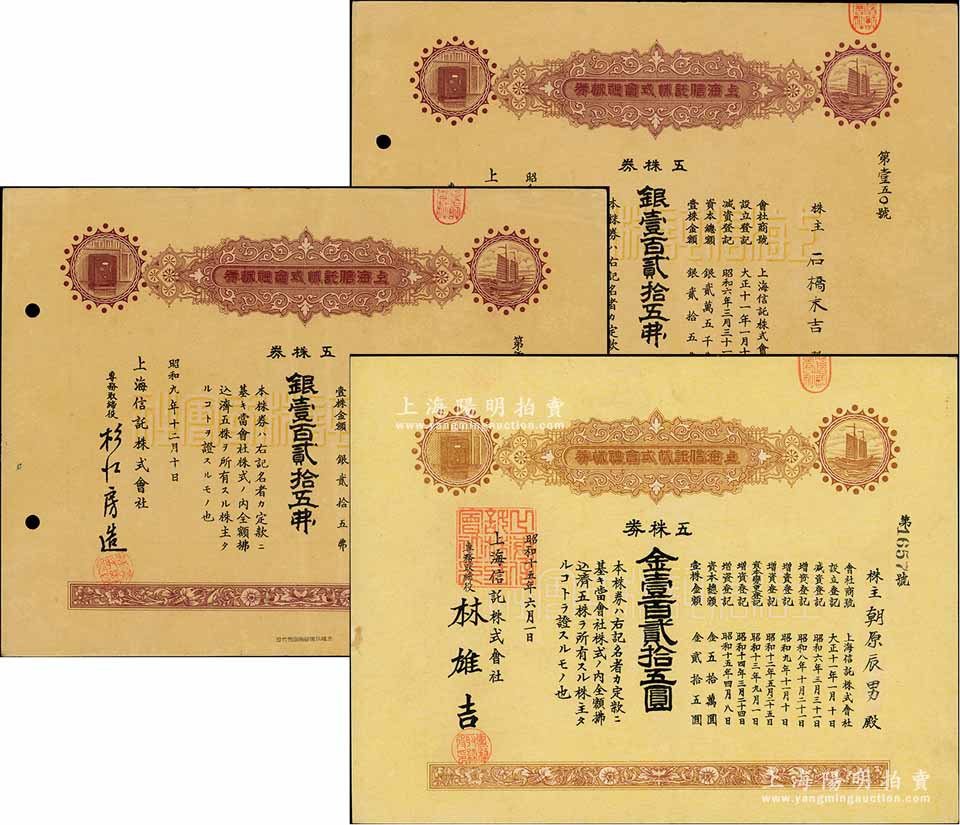 上海信託株式會社株券
五株券
第壹五〇號
株主 石橋末吉
會社商號 上海信託株式會
設立登記 大正十一年一月十
減資登記 昭和六年三月三十一
資本總額 銀貳萬五千
壹株金額 銀貳拾五
銀壹百貳拾五弗
本株券ハ右記名者カ定款
昭
上
上海信託株式會社株券
五株券
第
壹株金額 銀貳拾五弗
銀壹百貳拾五弗
本株券ハ右記名者カ定款ニ
基キ當會社株式ノ內全額拂
込濟五株ヲ所有スル株主タ
ルコトヲ證スルモノ也
昭和九年十二月十日
上海信託株式會社
專務取締役 杉江房造
上海信託株式會社株券
五株券
第1657號
株主 朝原辰男 殿
會社商號 上海信託株式會社
設立登記 大正十一年一月十日
減資登記 昭和六年三月三十一日
增資登記 昭和八年十月二十一日
增資登記 昭和九年十一月十日
增資登記 昭和十二年五月二十五日
昭和十三年九月一日
增資登記 昭和十四年三月二十四日
增資登記 昭和十五年四月八日
資本總額 金五拾萬圓
壹株金額 金貳拾五圓
金壹百貳拾五圓
本株券ハ右記名者カ定款ニ
基キ當會社株式ノ內全額拂
込濟五株ヲ所有スル株主タ
ルコトヲ證スルモノ也
昭和十五年六月一日
上海信託株式會社
專務取締役 林雄吉
上海陽明拍賣
www.yangmingauction.com
上海陽明拍賣
www.yangmingauction.com